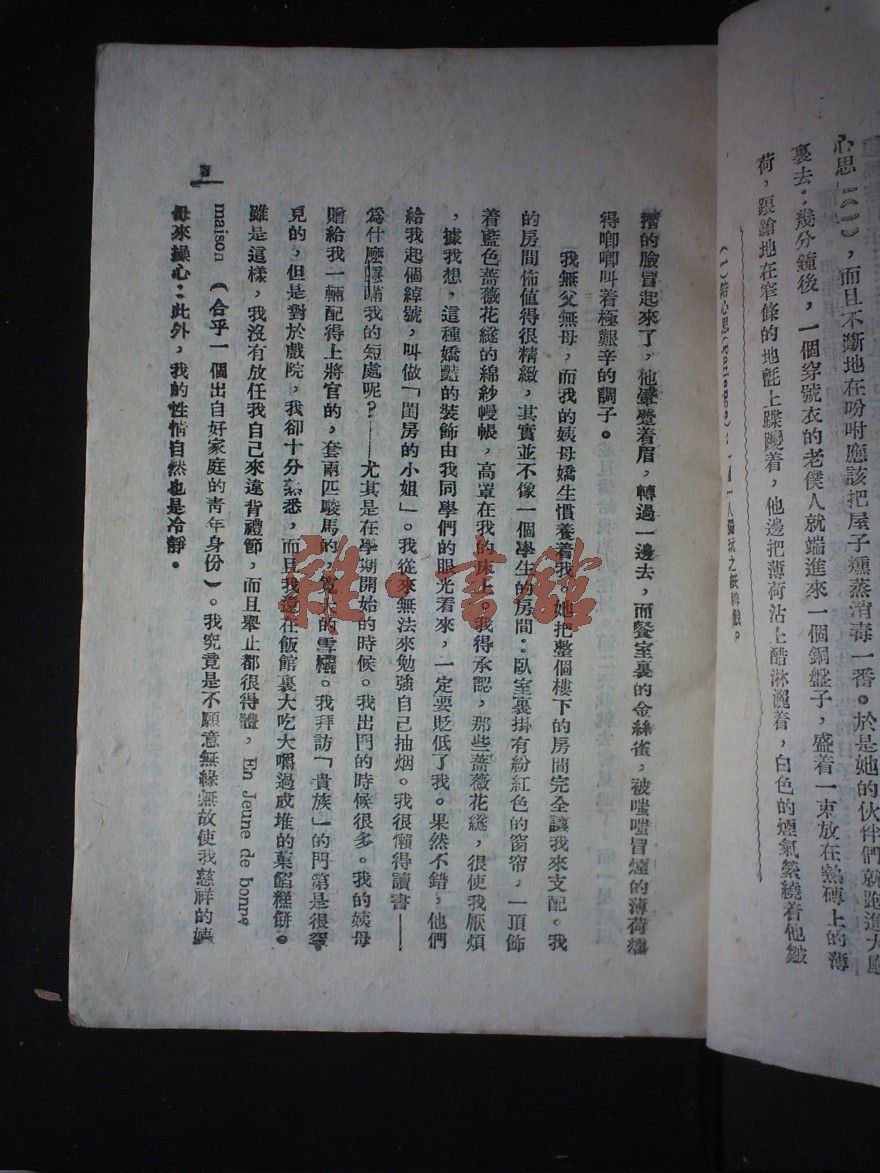 心思（一），而且不斷地在吩咐應該把屋子燻蒸消毒一番。於是她的伙伴們就跑進大廳
裏去：幾分鐘後，一個穿號衣的老僕人就端進來一個銅盤子，盛着一束放在熱磚上的薄
荷，踉蹌地在窄條的地氈上蹀躞着，他邊把薄荷沾上醋淋灑着，白色的煙氣縈繞着他皺
（一）陪心思 一人獨玩之紙牌戲。
摺的臉冒起來了，他顰蹙着眉，轉過一邊去，而餐室裏的金絲雀，被嗤嗤冒煙的薄荷燻
得唧唧叫着極艱辛的調子。
我無父無母，而我的姨母嬌生慣養着我。她把整個樓下的房間完全讓我來支配。我
的房間佈值得很精緻，其實並不像一個學生的房間：臥室裏掛有紛紅色的窗帘，一頂飾
着藍色薔薇花縫的綿紗幔帳，高罩在我的床上。我得承認，那些薔薇花縫，很使我厭煩
，據我想，這種嬌豔的裝飾由我同學們的眼光看來，一定要貶低了我。果然不錯，他們
給我起個綽號，叫做「閨房的小姐」。我從來無法來勉強自己抽烟。我很懶得讀書——
爲什麼隱瞞我的短處呢？——尤其是在學期開始的時候。我出門的時候很多。我的姨母
贈給我一輛配得上將官的，套兩匹駿馬的，寬大的雪橇。我拜訪「貴族」的門第是很罕
見的，但是對於戲院，我卻十分熟悉，而且我還在飯館裏大吃大嚼過成堆的菓餡糕餅。
雖是這樣，我沒有放任我自己來違背禮節，而且舉止都很得體，En Jeune de bonne
maison（合乎一個出自好家庭的靑年身份）。我究竟是不願意無緣無故使我慈祥的姨
母來操心：此外，我的性情自然也是冷靜。
雜·書館